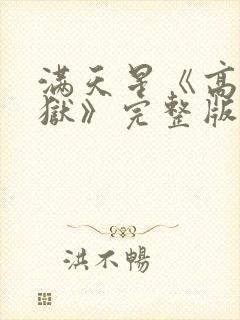 满天星《高
獄》完整版
洪不暢